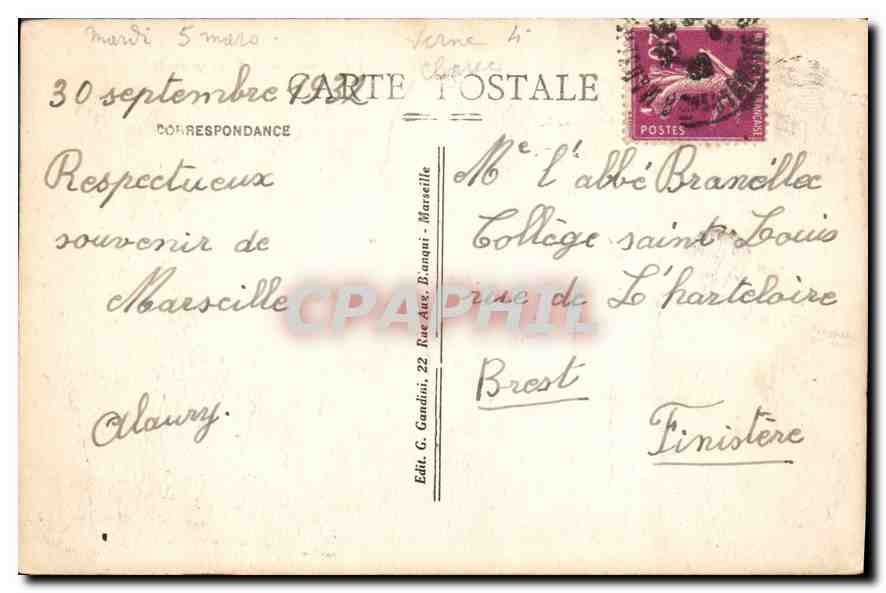 mardi 5 mars.
Verne 4
30 septembre 1932
CARTE POSTALE
CORRESPONDANCE
Respectueux
souvenir de
Marseille
Alaury.
Edit. G. Gandini, 22 Rue Aug. Blanqui - Marseille
POSTES
FRANÇAISE
Me l'abbé Branéllec
Collège saint Louis
rue de L'harteloire
Brest
Finistère
CPAPHIL